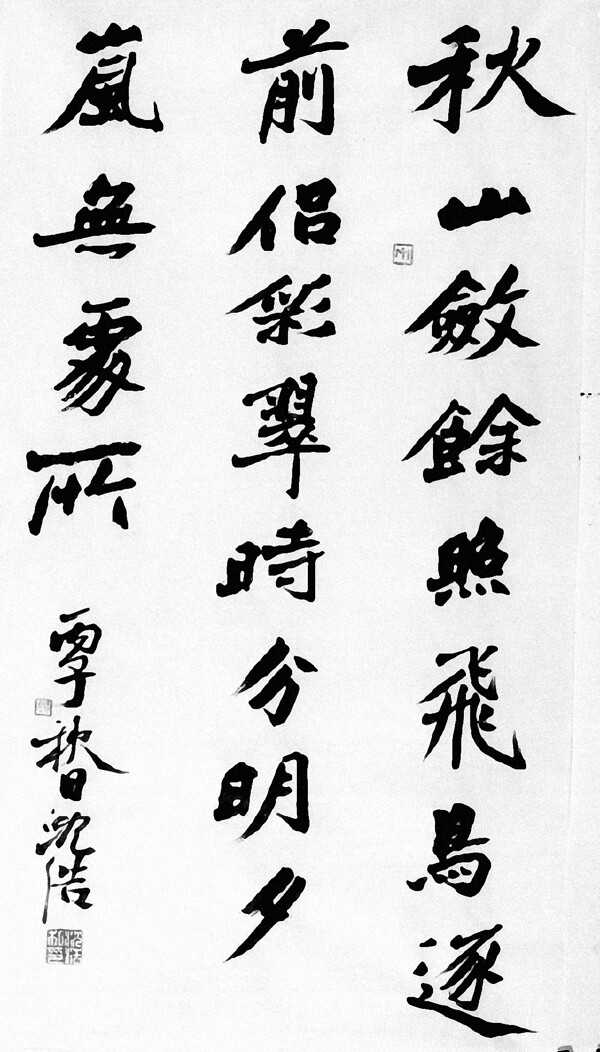 秋山斂餘照飛鳥逐
前侶彩翠時分明夕
嵐無處所
丙子秋日沈浩